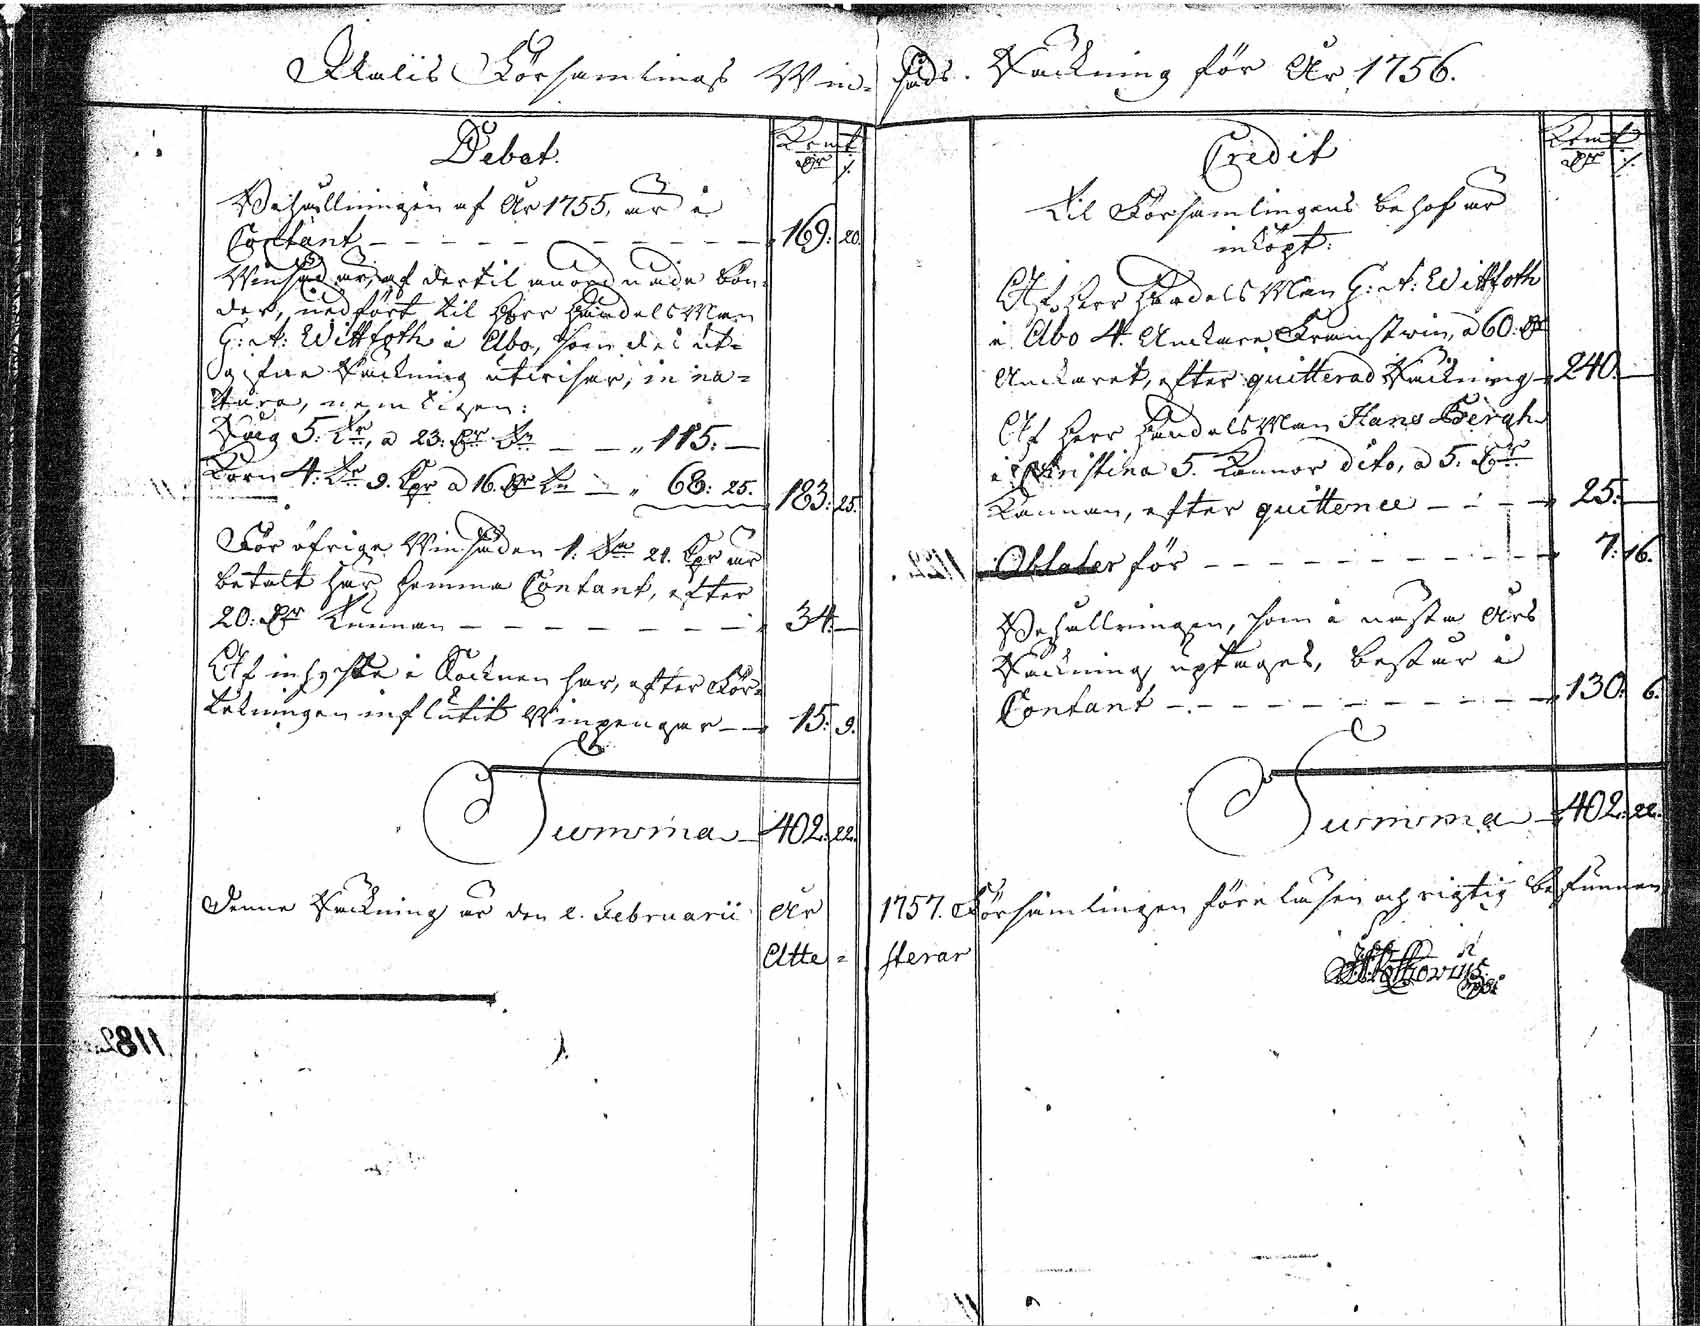 Ukalis Församlings Win-Säds Räckning för År 1756.
Debet.
Kmt
Dr
Behållningen af År 1755, är i
Contant 169: 20.
Winsäd är, af dertil anordnade bön-
der, nedfört til Herr Handels Man
G: A: Wittfoth i Åbo, som des ut-
gifne Räckning utwisar, in na-
tura, nemligen:
Råg 5. Tr, a 23: Dr Tn 115: —
Korn 4: Tr 9. Kpr a 16 Dr Tn 68: 25. 183: 25.
För öfrige Winsäden 1: Tn 21. Kpr är
betalt här hemma Contant, efter
20: Dr Tunnan 34: —
Af inhyste i Socknen har, efter För-
tekningen influtit Winpengar 15: 9.
Summa 402: 22.
Credit
Kmt
Dr
Til Församlingens behof är
inköpt:
Af Herr Handels Man G: A: Wittfoth
i Åbo 4. Anckare Franskt win, a 60: Dr
Anckaret, efter quitterad Räckning 240: —
Af Herr Handels Man Hans Bergh
i Christina 5. Kannor dito, a 5. Dr
Kannan, efter quittence 25: —
Oblater för 7: 16.
Behållningen, som i nästa Års
Räckning uptages, består i
Contant 130: 6.
Summa 402: 22.
Denne Räckning är den 2. Februarii År 1757. Församlingen föreläsen och rigtig befunnen
Atte-sterar
1182